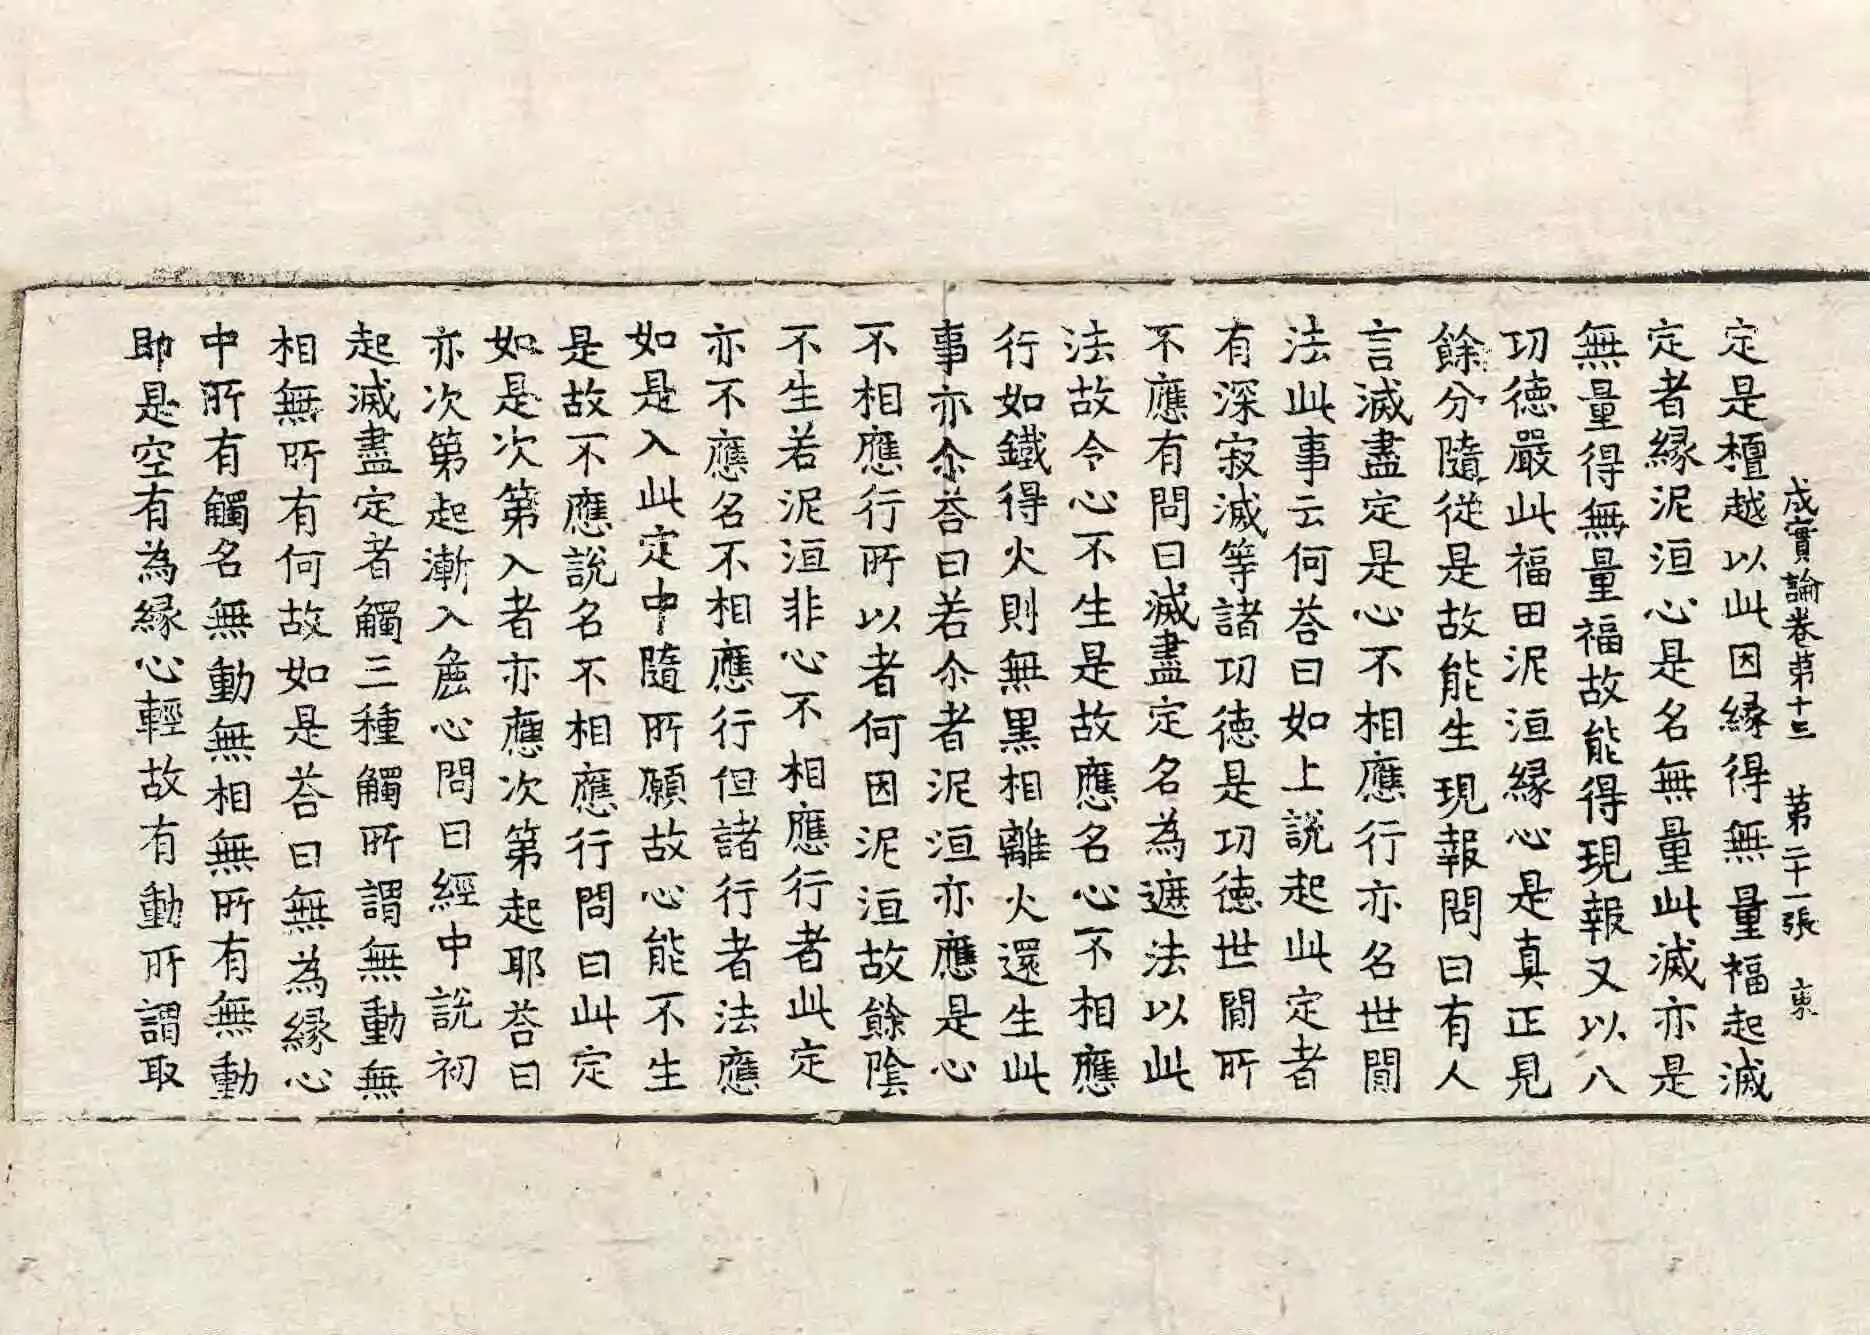 成實論卷第十三 第二十一張 東
定是檀越以此因縁得無量福起滅
定者縁泥洹心是名無量此滅亦是
無量得無量福故能得現報又以八
功德嚴此福田泥洹縁心是真正見
餘分隨從是故能生現報問曰有人
言滅盡定是心不相應行亦名世間
法此事云何荅曰如上說起此定者
有深寂滅等諸功德是功德世間所
不應有問曰滅盡定名為遮法以此
法故令心不生是故應名心不相應
行如鐵得火則無黒相離火還生此
事亦尒荅曰若尒者泥洹亦應是心
不相應行所以者何因泥洹故餘陰
不生若泥洹非心不相應行者此定
亦不應名不相應行但諸行者法應
如是入此定中隨所願故心能不生
是故不應說名不相應行問曰此定
如是次第入者亦應次第起耶荅曰
亦次第起漸入麁心問曰經中説初
起滅盡定者觸三種觸所謂無動無
相無所有何故如是荅曰無為縁心
中所有觸名無動無相無所有無動
即是空有為縁心輕故有動所謂取